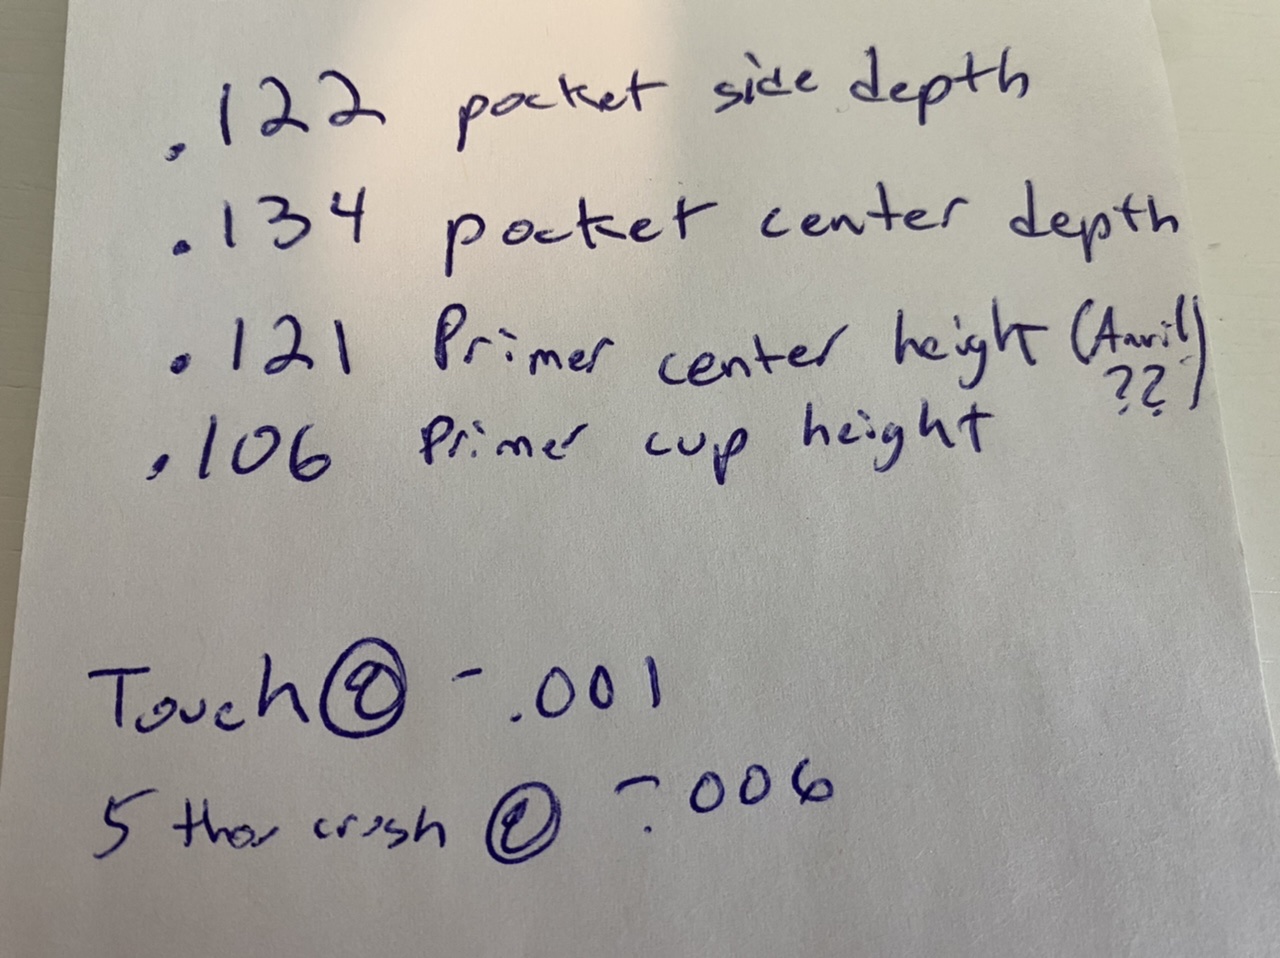 .122 pocket side depth
.134 pocket center depth
.121 Primer center height (Anvil ??)
.106 Primer cup height
Touch @ -.001
5 thou crush @ -.006